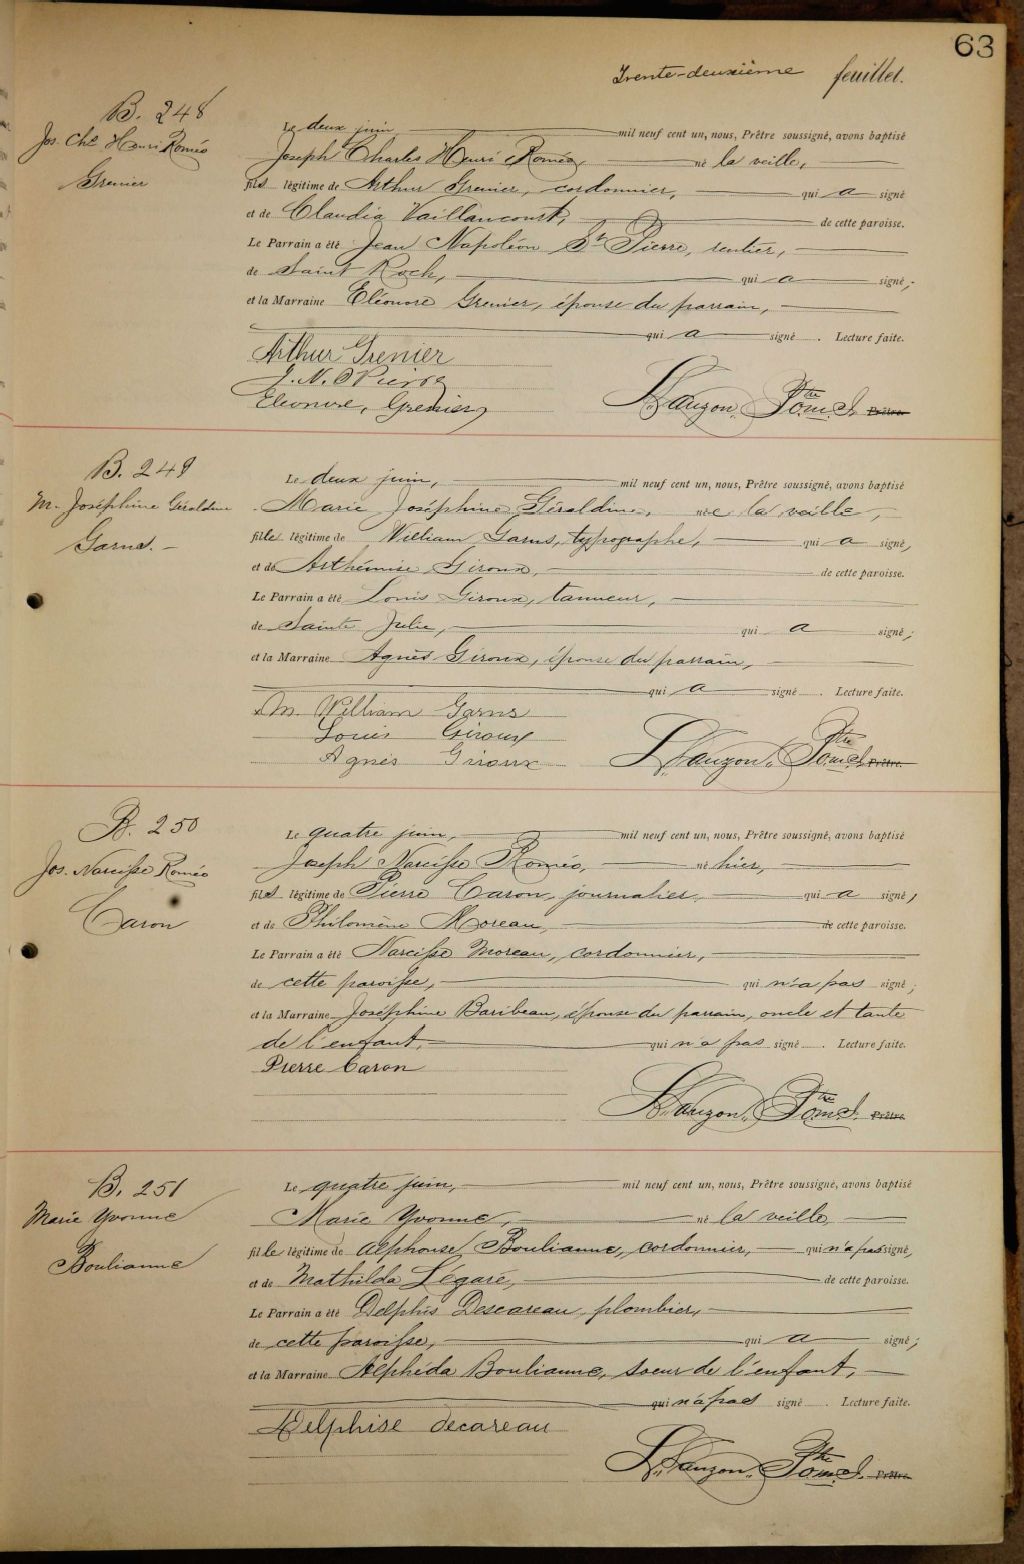 63
Trente-deuxième feuillet.
B. 248
Jos. Chs Henri Roméo
Grenier
Le deux juin, mil neuf cent un, nous, Prêtre soussigné, avons baptisé
Joseph Charles Henri Roméo, né la veille,
fils légitime de Arthur Grenier, cordonnier, qui a signé
et de Claudia Vaillancourt, de cette paroisse.
Le Parrain a été Jean Napoléon St Pierre, rentier,
de Saint Roch, qui a signé;
et la Marraine Eléonore Grenier, épouse du parrain,
qui a signé. Lecture faite.
Arthur Grenier
J. N. St Pierre
Eleonore, Grenier
H. Lauzon, Ptre O.m.I. Prêtre.
B. 249
M. Joséphine Géraldine
Garns.
Le deux juin, mil neuf cent un, nous, Prêtre soussigné, avons baptisé
Marie Joséphine Géraldine, née la veille,
fille légitime de William Garns, typographe, qui a signé,
et de Arthémise Giroux, de cette paroisse.
Le Parrain a été Louis Giroux, tanneur,
de Sainte Julie, qui a signé;
et la Marraine Agnès Giroux, épouse du parrain,
qui a signé. Lecture faite.
M. William Garns
Louis Giroux
Agnes Giroux
H. Lauzon, Ptre O.m.I. Prêtre.
B. 250
Jos. Narcisse Roméo
Caron
Le quatre juin, mil neuf cent un, nous, Prêtre soussigné, avons baptisé
Joseph Narcisse Roméo, né hier,
fils légitime de Pierre Caron, journalier, qui a signé,
et de Philomène Moreau, de cette paroisse.
Le Parrain a été Narcisse Moreau, cordonnier,
de cette paroisse, qui n'a pas signé;
et la Marraine Joséphine Baribeau, épouse du parrain, oncle et tante
de l'enfant, qui n'a pas signé. Lecture faite.
Pierre Caron
H. Lauzon, Ptre O.m.I. Prêtre.
B. 251
Marie Yvonne
Boulianne
Le quatre juin, mil neuf cent un, nous, Prêtre soussigné, avons baptisé
Marie Yvonne, né la veille,
fille légitime de Alphonse Boulianne, cordonnier, qui n'a pas signé,
et de Mathilda Légaré, de cette paroisse.
Le Parrain a été Delphis Descareau, plombier,
de cette paroisse, qui a signé;
et la Marraine Alphéda Boulianne, soeur de l'enfant,
qui n'a pas signé. Lecture faite.
Delphise decareau
H. Lauzon, Ptre O.m.I. Prêtre.